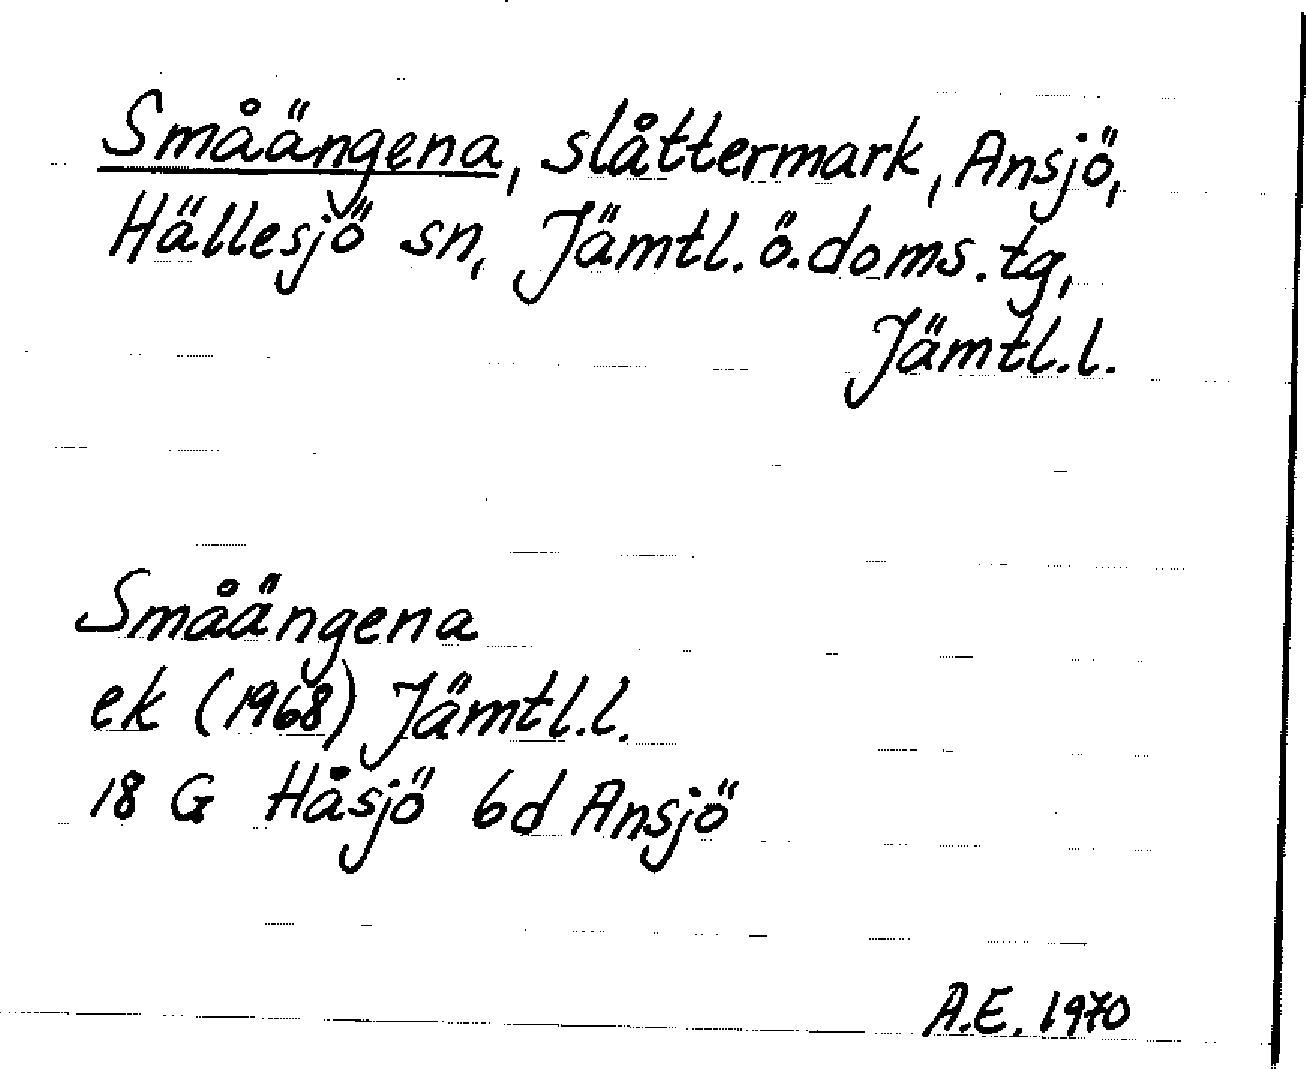 Småängena, slåttermark, Ansjö,
Hällesjö sn, Jämtl. ö. doms. tg,
Jämtl. l.
Småängena
ek (1968) Jämtl. l.
18 G Håsjö 6d Ansjö
A.E. 1970